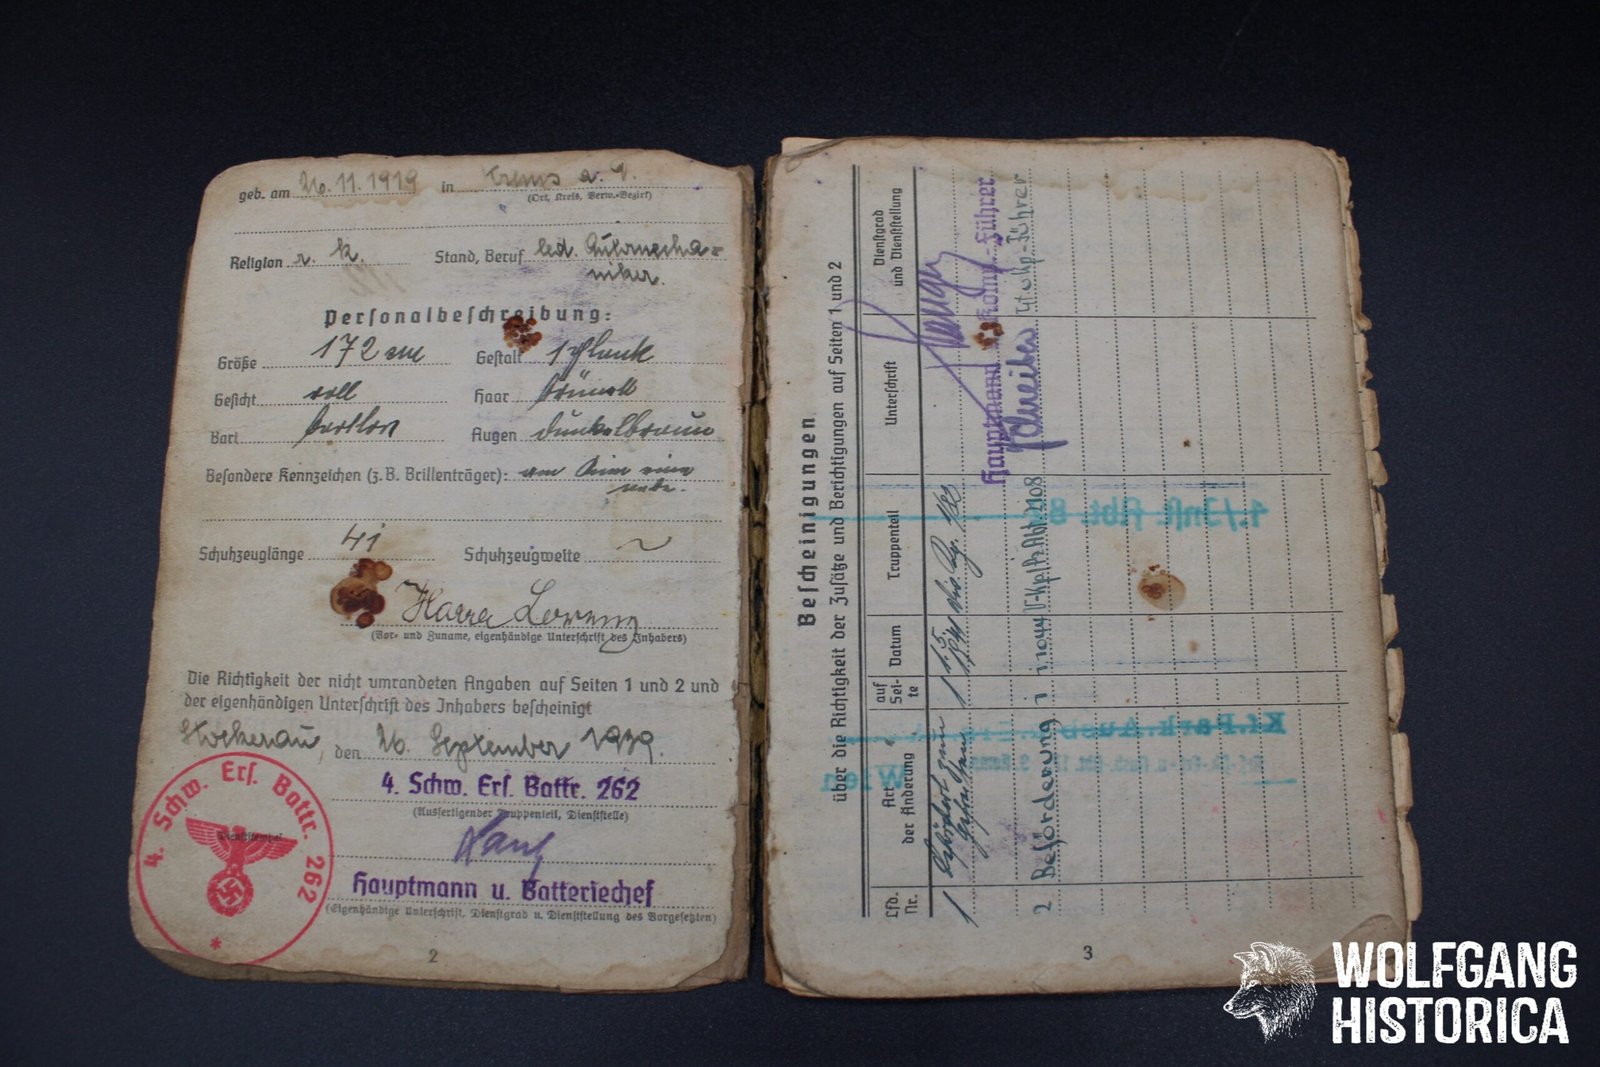 geb. am 26.11.1919 in Krems a. d.
(Ort, Kreis, Verw.-Bezirk)
Religion r. k. Stand, Beruf led. Automecha=
niker.
Personalbeschreibung:
Größe 172 cm Gestalt schlank
Gesicht voll Haar brünett
Bart bartlos Augen dunkelbraun
Besondere Kennzeichen (z. B. Brillenträger): am Kinn eine
Narbe.
Schuhzeuglänge 41 Schuhzeugweite ~
Lorenz
(Vor- und Zuname, eigenhändige Unterschrift des Inhabers)
Die Richtigkeit der nicht umrandeten Angaben auf Seiten 1 und 2 und
der eigenhändigen Unterschrift des Inhabers bescheinigt
Stockerau, den 26. September 1939.
4. Schw. Ers. Battr. 262
(Ausfertigender Truppenteil, Dienststelle)
Hauptmann u. Batteriechef
(Eigenhändige Unterschrift, Dienstgrad u. Dienststellung des Vorgesetzten)
4. Schw. Ers. Battr. 262 *
Dienststempel
2
Bescheinigungen
über die Richtigkeit der Zusätze und Berichtigungen auf Seiten 1 und 2
Lfd. Nr. Art der Änderung auf Seite Datum Truppenteil Unterschrift Dienstgrad und Dienststellung
1 Befördert zum 1 1.5.
Gefreiten 1941
Hauptmann u. Komp.-Führer
2 Beförderung 1 1.1044 Abt. 2108 Schreiber Lt. u. Kp.-Führer
1./Inst. Abt. 8
Kf. Park. Ausb.
Wien
3
WOLFGANG
HISTORICA